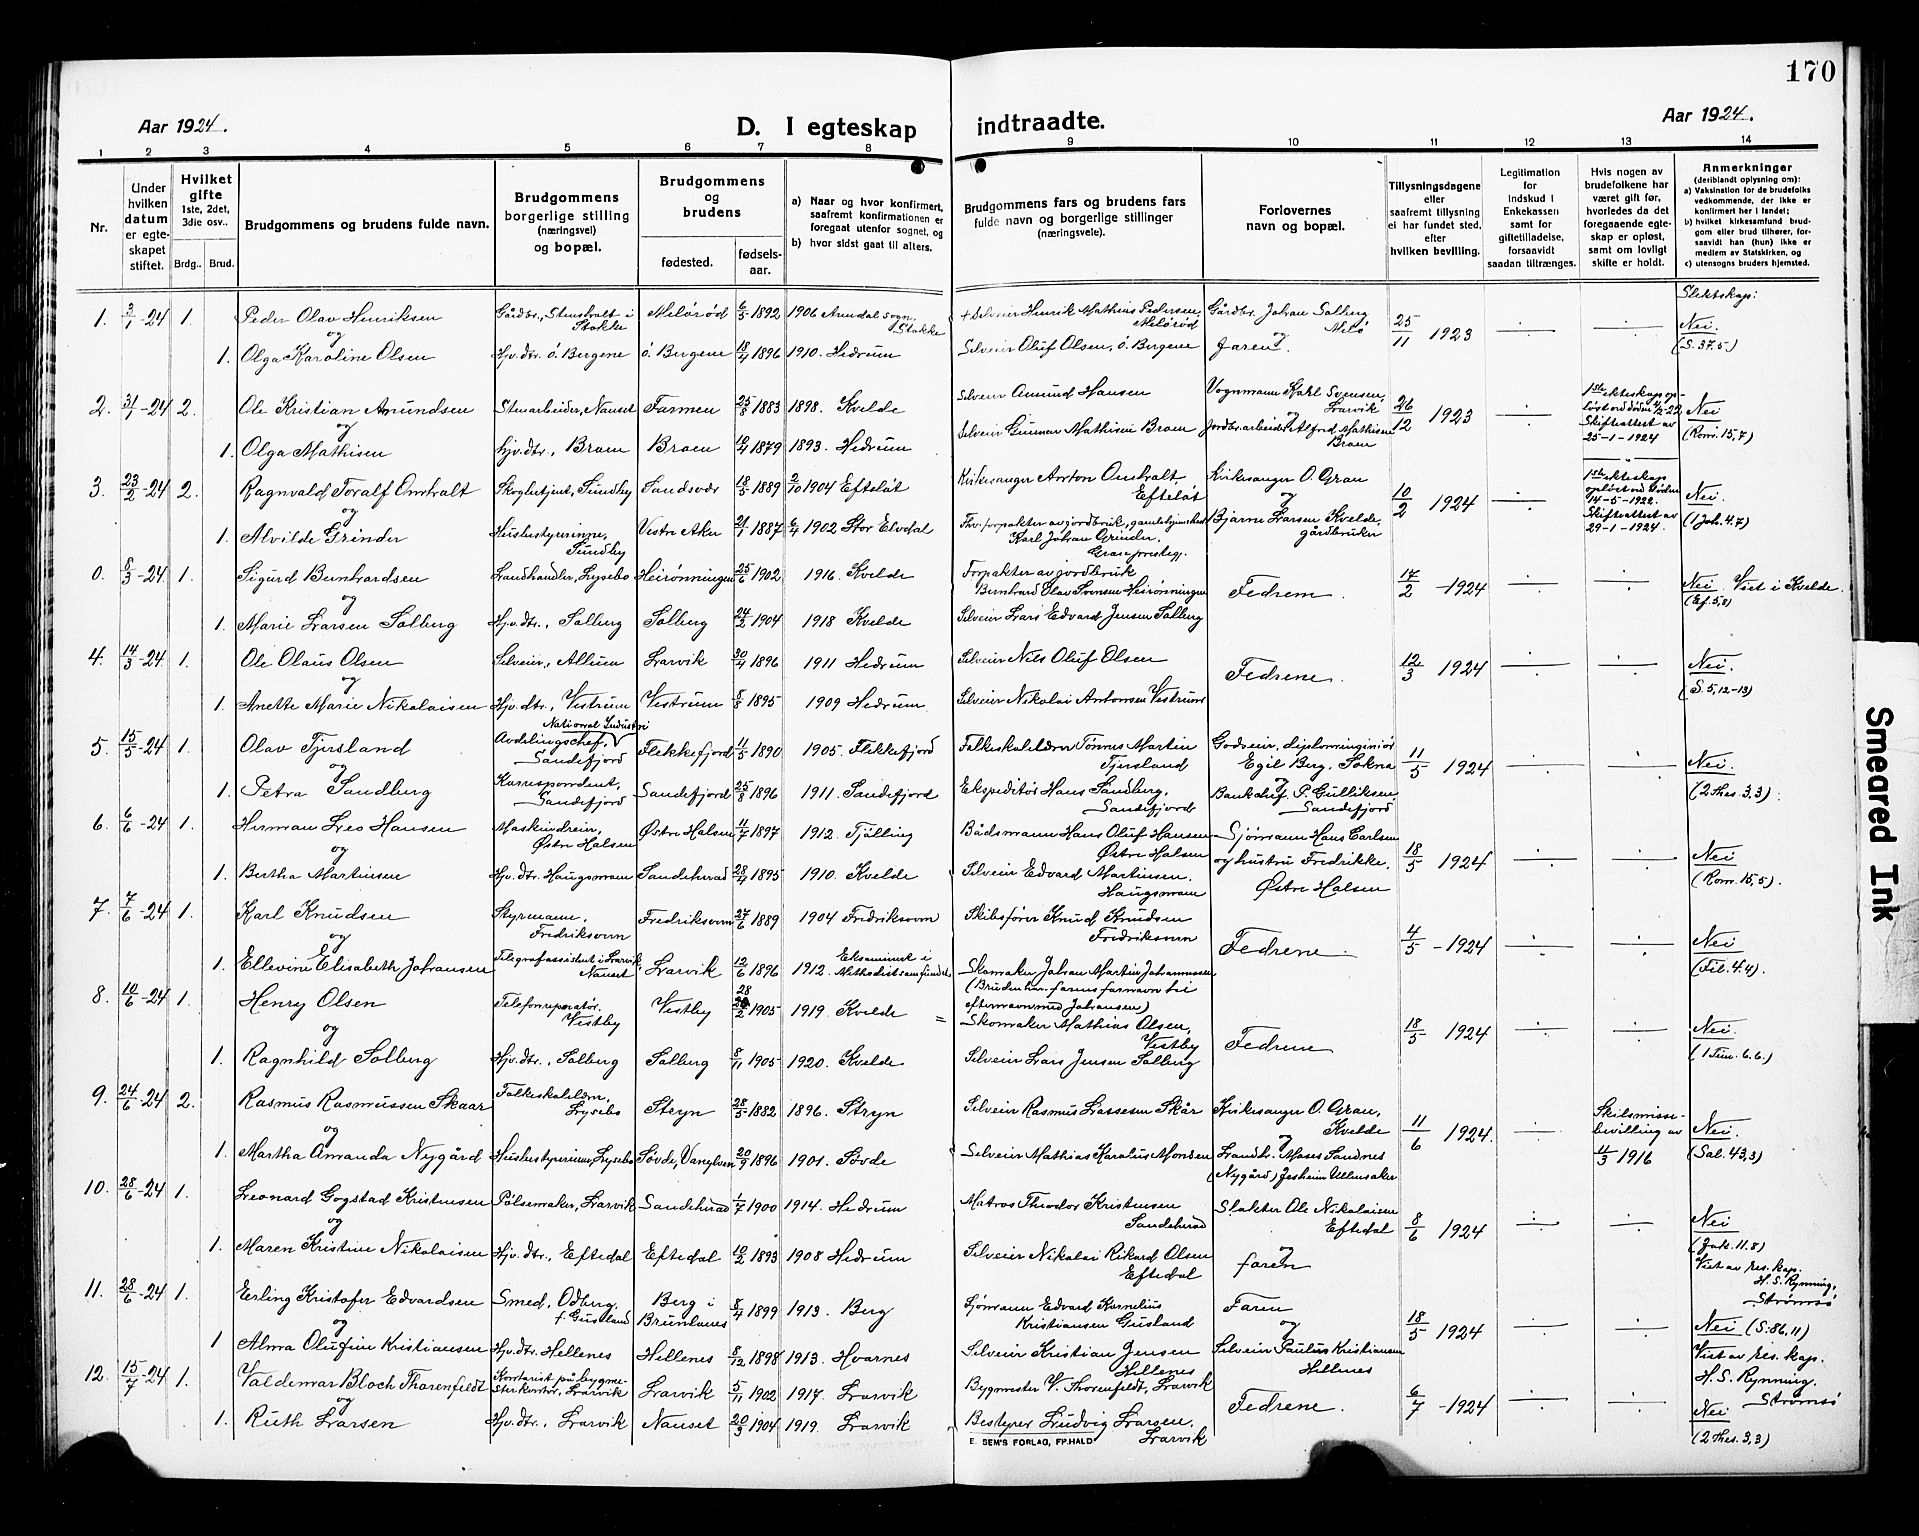 170
Aar 1924.
D. I egteskap indtraadte.
Aar 1924.
1 2 3 4 5 6 7 8 9 10 11 12 13 14
Nr.
Under hvilken datum er egteskapet stiftet.
Hvilket gifte 1ste, 2det, 3die osv..
Brdg.. Brud.
Brudgommens og brudens fulde navn.
Brudgommens borgerlige stilling (næringsvei) og bopæl.
Brudgommens og brudens
fødested. fødselsaar.
a) Naar og hvor konfirmert, saafremt konfirmationen er foregaat utenfor sognet, og
b) hvor sidst gaat til alters.
Brudgommens fars og brudens fars fulde navn og borgerlige stillinger (næringsveie).
Forlovernes navn og bopæl.
Tillysningsdagene eller saafremt tillysning ei har fundet sted, efter hvilken bevilling.
Legitimation for indskud i Enkekassen samt for giftetilladelse, forsaavidt saadan tiltrænges.
Hvis nogen av brudefolkene har været gift før, hvorledes da det foregaaende egteskap er opløst, samt om lovligt skifte er holdt.
Anmerkninger (deriblandt oplysning om):
a) Vaksination for de brudefolks vedkommende, der ikke er konfirmert her i landet;
b) hvilket kirkesamfund brudgom eller brud tilhører, forsaavidt han (hun) ikke er medlem av Statskirken, og
c) utensogns bruders hjemsted.
Slektskap:
1. 3/1-24 1. Peder Olav Henriksen Gårdbr., Stenshalt i Stokke Melørød 6/5 1892 1906 Arendal sogn, Stokke + Selveier Henrik Mathias Pedersen, Melørød Gårdbr. Johan Solberg Melø 25/11 1923 Nei.
og
1. Olga Karoline Olsen Hjv. dtr. ö. Bergene ö. Bergene 18/4 1896 1910. Hedrum Selveier Oluf Olsen, ö. Bergene og Faren. (S. 37.5)
2. 31/1-24 2. Ole Kristian Amundsen Stenarbeider, Nanset Farmen 25/8 1883 1898. Kvelde Selveier Amund Hansen Vognmann Karl Svensen, Larvik 26/12 1923 1ste ekteskap opløst ved døden 4/2-22 Skifteattest av 25-1-1924 Nei
og
1. Olga Mathisen Hjv. dtr., Braen Braen 10/4 1879 1893. Hedrum Selveier Gunnar Mathisen Braen og Jordbr.arbeider Alfred Mathisen Braen (Rom. 15,7)
3. 23/2-24 2. Ragnvald Toralf Omholt Skogbetjent, Sundby Sandsvær 18/5 1889 2/10 1904 Efteløt Kirkesanger Anton Omholt Efteløt Kirkesanger O. Grau 10/2 1924 1ste ekteskap opløst ved døden 14-5-1922. Skifteattest av 29-1-1924. Nei.
og
1. Alvilde Grinder Husbestyrerinne, Sundby Vestre Aker 21/1 1887 6/4 1902 Stor Elvdal Fhv. forpakter av jordbruk, gamlehjemsbest. Karl Johan Grinder, Grue prestegj. og Bjarne Larsen Kvelde, gårdbruker (1 Joh. 4.7)
0. 8/3-24 1. Sigurd Bernhardsen Landhandler, Lysebo Heirønningen 25/6 1902 1916. Kvelde Forpakter av jordbruk Bernhard Olav Sørensen Heirønningen Fedrene. 17/2-1924 Nei. Viet i Kvelde.
og
1. Marie Larsen Solberg Hjv. dtr., Solberg Solberg 24/2 1904 1918 Kvelde Selveier Lars Edvard Jensen Solberg (Ef. 5,8)
4. 14/3-24 1. Ole Olaus Olsen Selveier, Allum Larvik 30/4 1896 1911 Hedrum Selveier Nils Oluf Olsen Fedrene. 12/3 1924 Nei.
og
1. Anette Marie Nikolaisen Hjv. dtr., Vestrum Vestrum 8/8 1895 1909 Hedrum Selveier Nikolai Antonsen Vestrum (S. 5,12-13)
5. 15/5-24 1. Olav Tjersland Avdelingschef, National Industri Sandefjord Flekkefjord 11/5 1890 1905. Flekkefjord Folkeskolelærer Tønnes Martin Tjersland Godseier, diplomingeniør Egil Berg, Sokna 11/5 1924 Nei.
og
1. Petra Sandberg Korrespondent, Sandefjord Sandefjord 25/8 1896 1911. Sandefjord Ekspeditør Hans Sandberg, Sandefjord og Bankchef P. Gulliksen Sandefjord (2 Thes. 3,3)
6. 6/6-24 1. Herman Leo Hansen Maskindreier, Østre Halsen Østre Halsen 11/7 1897 1912. Tjølling Bådsmann Hans Oluf Hansen Østre Halsen Sjømann Hans Carlsen 18/5 1924 Nei
og
1. Bertha Martinsen Hjv. dtr. Haugsmoen Sandeherad 28/4 1895 1910. Kvelde Selveier Edvard Martinsen. Haugsmoen og hustru Fredrikke. Østre Halsen (Rom. 15,5).
7. 7/6-24 1. Karl Knudsen Styrmann, Fredriksvern Fredriksvern 27/6 1889 1904 Fredriksvern Skibsfører Knud Knudsen Fredriksvern Fedrene. 4/5-1924 Nei
og
1. Ellevine Elisabeth Johansen Telegrafassistent i Larvik, Nanset Larvik 12/6 1896 1912. Eksaminert i Methodistsamfundet Skomaker Johan Martin Johannessen (Bruden har farens farnavn til efternavn med Johansen) (Fil. 4.4).
8. 10/6-24 1. Henry Olsen Telefonreparatør. Vestby Vestby 28/2 1905 1919. Kvelde = Skomaker Mathias Olsen, Vestby Fedrene 18/5 1924 Nei.
og
1. Ragnhild Solberg Hjv. dtr., Solberg Solberg 8/11 1905 1920. Kvelde Selveier Lars Jensen Solberg (1 Tim. 6.6.)
9. 24/6-24 2. Rasmus Rasmussen Skaar Folkeskolelærer, Lysebo Stryn 28/5 1882 1896. Stryn Selveier Rasmus Lassesen Skår Kirkesanger O. Grau, Kvelde 11/6 1924. Skilsmissebevilling av 11/3 1916 Nei.
og
1. Martha Amanda Nygård Husbestyrerinne, Lysebo Søvde, Vanylven 20/9 1896 1901. Søvde Selveier Mathias Karolus Monsen (Nygård) og Landh. Moses Sandnes Jesheim Ullensaker (Sal. 43,3)
10. 28/6-24 1. Leonard Gogstad Kristensen Pølsemaker, Larvik Sandeherad 1/7 1900 1914. Hedrum Matros Theodor Kristensen Sandeherad Slakter Ole Nikolaisen Eftedal 8/6 1924 Nei
og
1. Maren Kristine Nikolaisen Hjv. dtr., Eftedal Eftedal 10/2 1893 1908 Hedrum Selveier Nikolai Rikard Olsen Eftedal og faren (Jak. 11.8) Viet av res. kap. H. S. Rynning, Strømsø
11. 28/6-24 1. Erling Kristofer Edvardsen Smed, Odberg, f. Gusland Berg i Brunlanes 8/4 1899 1913. Berg Sjømann Edvard Kornelius Kristiansen Gusland Faren 18/5 1924 Nei (S. 86,11)
og
1 Alma Olufine Kristiansen Hjv. dtr. Hellenes Hellenes 8/12 1898 1913. Hvarnes Selveier Kristian Jensen Hellenes og Selveier Paulus Kristiansen Hellenes Viet av res. kap. H. S. Rynning. Strømsø
12. 15/7-24 1. Valdemar Bloch Thorenfeldt Kontorist på bygmesterkontor, Larvik Larvik 5/11 1902 1917. Larvik Bygmester V. Thorenfeldt, Larvik Fedrene. 6/7-1924 Nei
og
1. Ruth Larsen Hjv. dtr., Larvik Nanset 20/3 1904 1919. Larvik Bestyrer Ludvig Larsen, Larvik (2 Thes. 3,3)
E. SEM'S FORLAG, FR.HALD
Smeared Ink